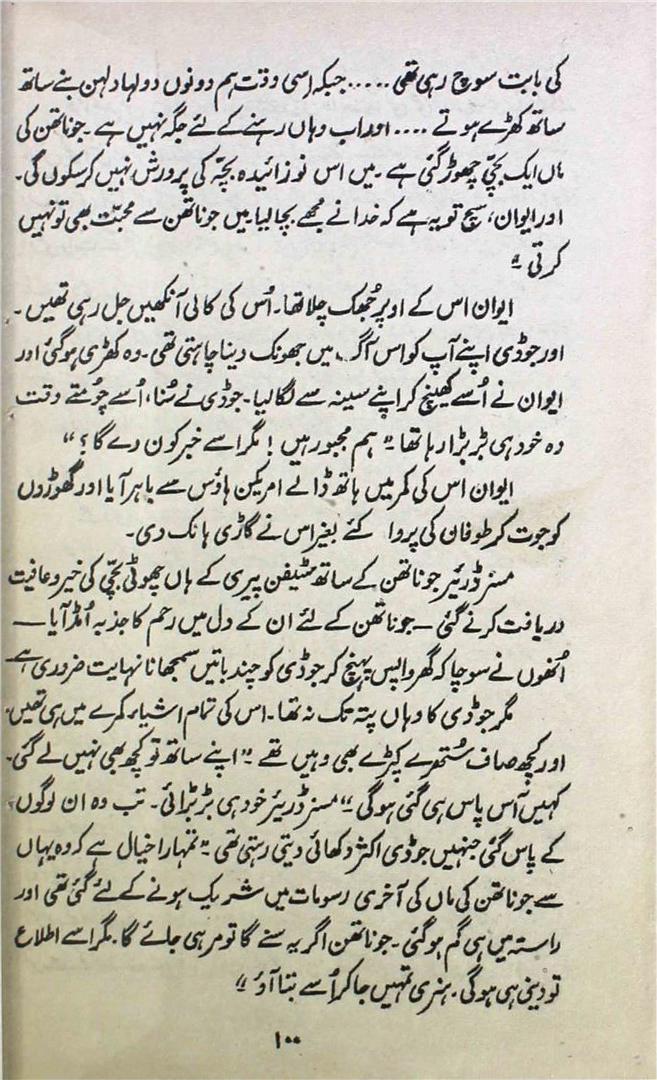 کی بابت سوچ رہی تھی ..... جبکہ اسی وقت ہم دونوں دولہا دلہن بنے ساتھ
ساتھ کھڑے ہوتے .... اور اب وہاں رہنے کے لئے جگہ نہیں ہے۔ جوناتھن کی
ماں ایک بچی چھوڑ گئی ہے۔ میں اس نوزائیدہ بچہ کی پرورش نہیں کر سکوں گی۔
اور ایوان، سچ تو یہ ہے کہ خدا نے مجھے بچا لیا۔ میں جوناتھن سے محبت بھی تو نہیں
کرتی"
ایوان اس کے اوپر جُھک چلا تھا۔ اُس کی کالی آنکھیں جل رہی تھیں۔
اور جوڈی اپنے آپ کو اس آگ میں جھونک دینا چاہتی تھی۔ وہ کھڑی ہو گئی اور
ایوان نے اُسے کھینچ کر اپنے سینہ سے لگا لیا۔ جوڈی نے سُنا، اُسے چومتے وقت
وہ خود ہی بڑبڑا رہا تھا "ہم مجبور ہیں! مگر اسے خبر کون دے گا؟"
ایوان اس کی کمر میں ہاتھ ڈالے امریکن ہاؤس سے باہر آیا اور گھوڑوں
کو جوت کر طوفان کی پروا کئے بغیر اس نے گاڑی ہانک دی۔
مسز ڈرئیر جوناتھن کے ساتھ سٹیفن پیری کے ہاں چھوٹی بچی کی خیر و عافیت
دریافت کرنے گئی — جوناتھن کے لئے ان کے دل میں رحم کا جذبہ اُمڈ آیا —
اُنھوں نے سوچا کہ گھر واپس پہنچ کر جوڈی کو چند باتیں سمجھانا نہایت ضروری ہے
مگر جوڈی کا وہاں پتہ تک نہ تھا۔ اس کی تمام اشیاء کمرے میں ہی تھیں۔
اور کچھ صاف سُتھرے کپڑے بھی وہیں تھے "اپنے ساتھ تو کچھ بھی نہیں لے گئی۔
کہیں آس پاس ہی گئی ہو گی" مسز ڈریئر خود ہی بڑبڑائی۔ تب وہ ان لوگوں
کے پاس گئی جنہیں جوڈی اکثر دکھائی دیتی رہتی تھی "تمہارا خیال ہے کہ وہ یہاں
سے جوناتھن کی ماں کی آخری رسومات میں شریک ہونے کے لئے گئی تھی اور
راستہ میں ہی گم ہو گئی۔ جوناتھن اگر یہ سنے گا تو مر ہی جائے گا۔ مگر اسے اطلاع
تو دینی ہی ہوگی۔ ہنری تمہیں جا کر اُسے بتا آؤ"
۱۰۰